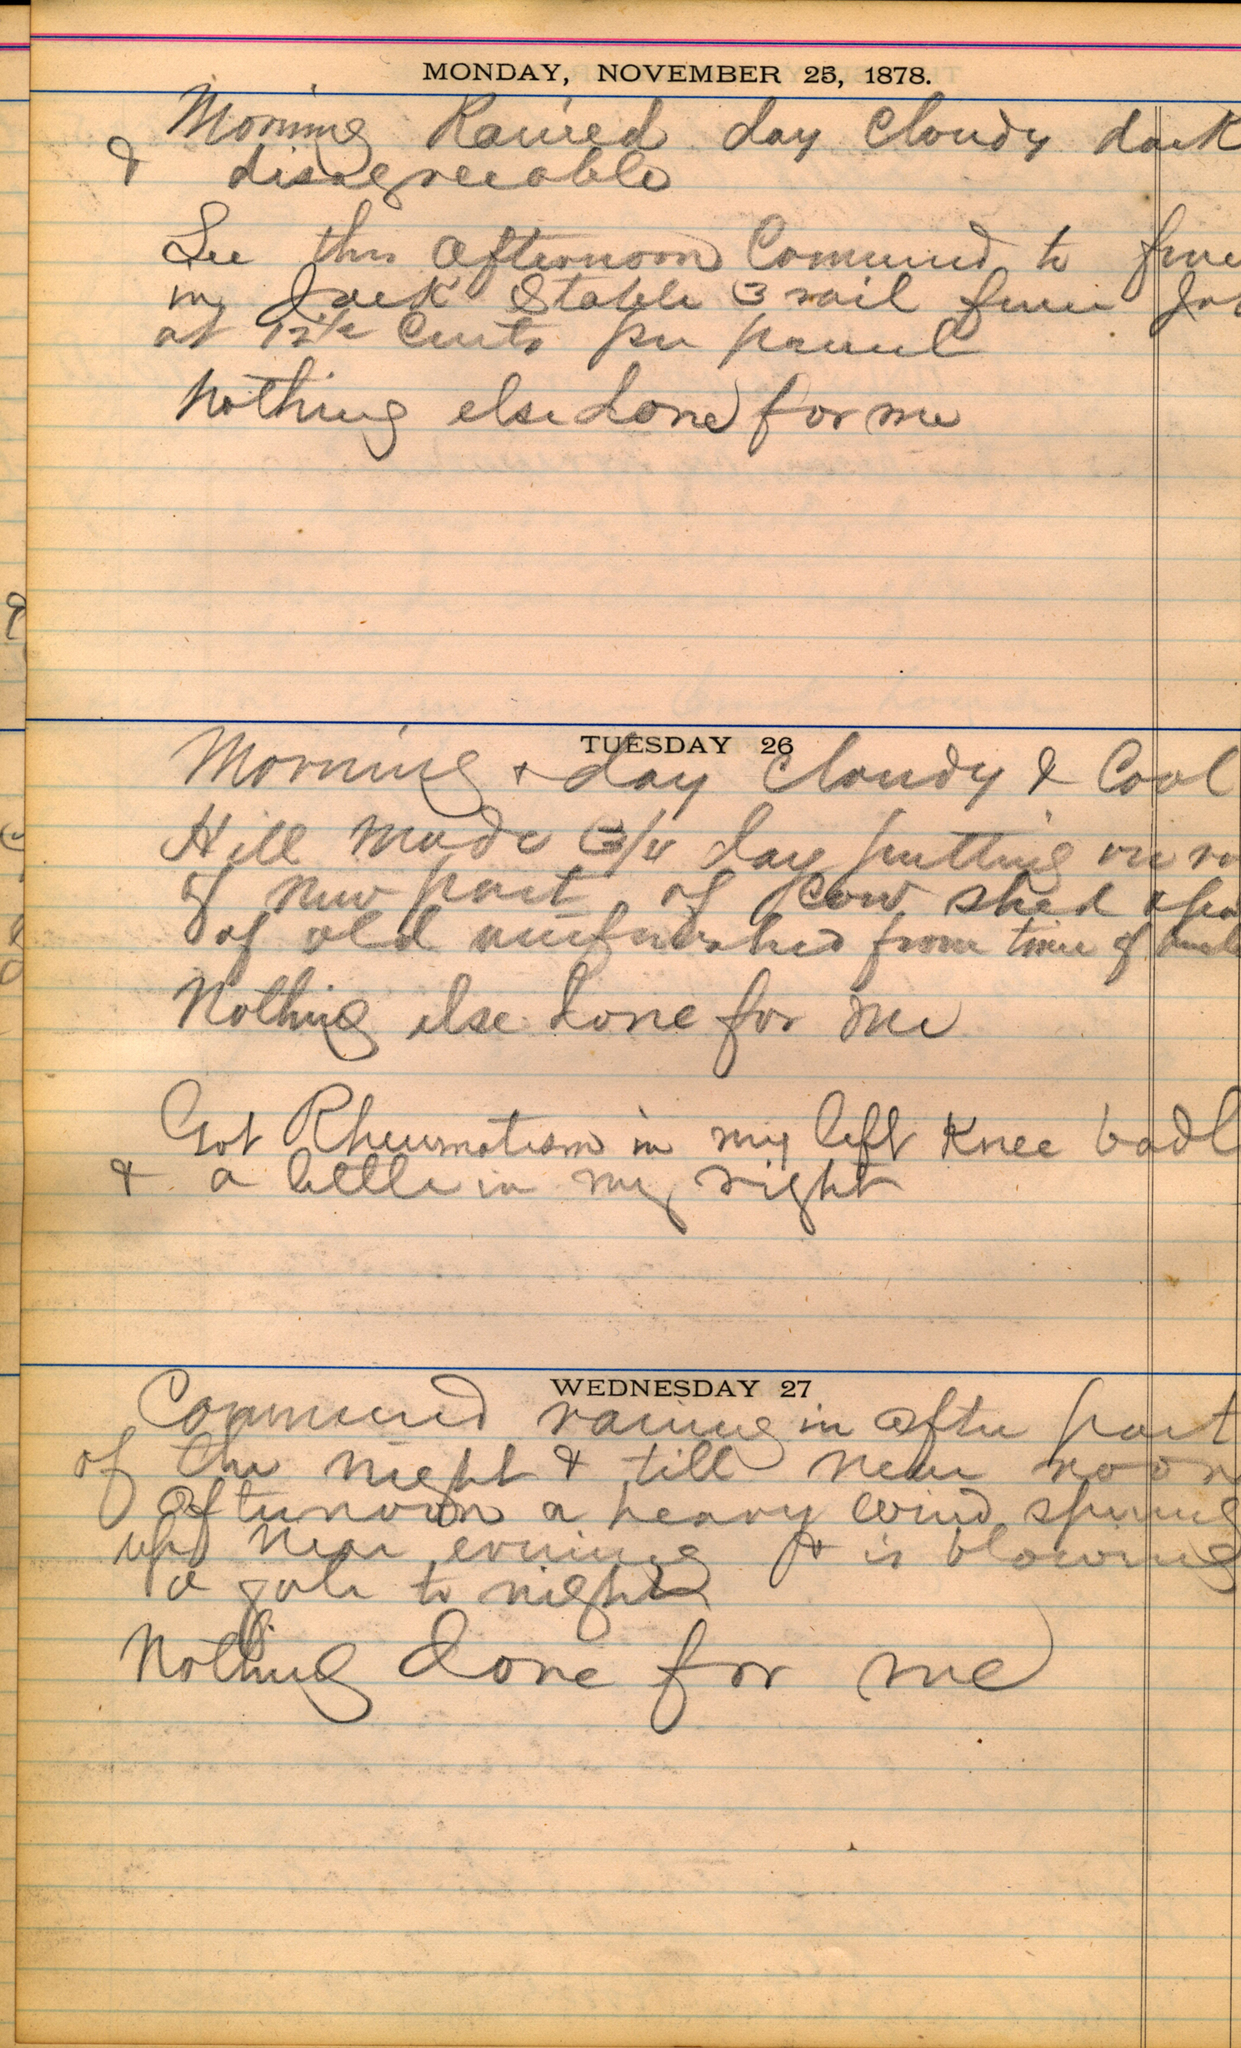 MONDAY, NOVEMBER 25, 1878.
Morning Rained day Cloudy dark
& disagreeable
Lee this afternoon Commenced to
my Jack Stable 3 rail fence
at 12½ Cents per pannel
Nothing else done for me
TUESDAY 26
Morning & day Cloudy & Cool
Hill made 3/4 day putting on
of new part of Cow shed
of old unfinished from time of
Nothing else done for me
Got Rheumatism in my left Knee
& a little in my right
WEDNESDAY 27
Commenced raining in after part
of the night & till near noon
afternoon a heavy wind sprung
up near evening & is blowing
a gale to night
Nothing done for me